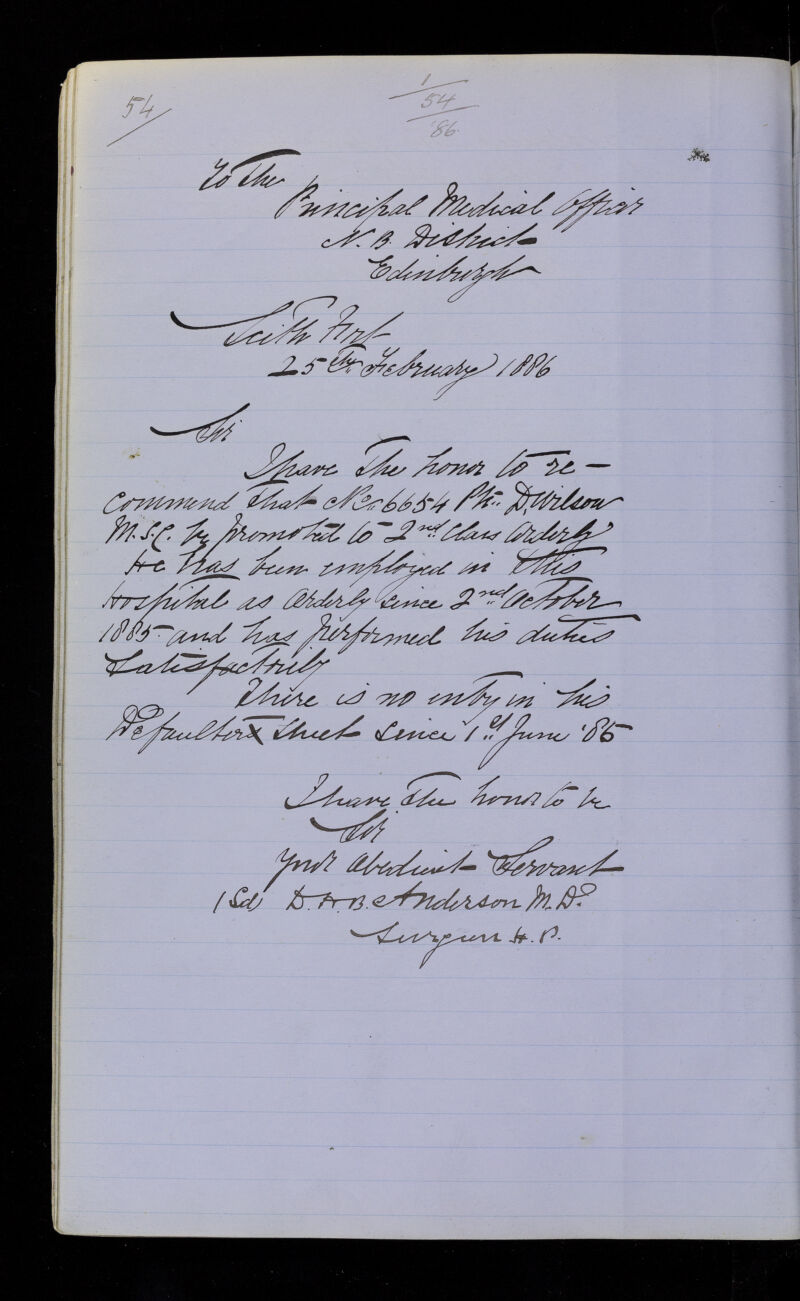 54
1
54
'86
To The
Principal Medical Officer
N. B. District
Edinburgh
Leith Fort
25th February 1886
Sir
I have the honor to re-
commend that No. 6654 Pte. D. Wilson
M.S.C. be promoted to 2nd Class Orderly
He has been employed in this
Hospital as Orderly since 2nd October
1885 and has performed his duties
Satisfactorily
There is no entry in his
Defaulters Sheet since 1st June '85
I have the honor to be
Sir
Your Obedient Servant
(Sd) D. H. B. Anderson M.D.
Surgeon H. P.